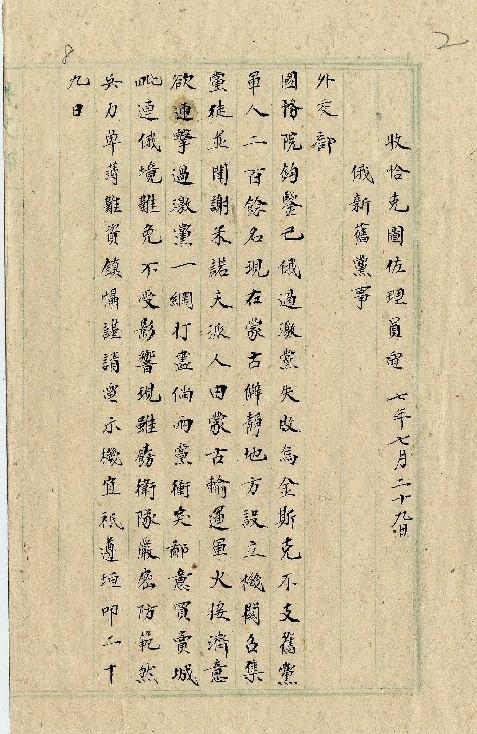 2
8
收恰克圖佐理員電 七年七月二十九日
俄新舊黨事
外交部
國務院鈞鑒己俄過激黨失敗烏金斯克不支舊黨
軍人二百餘名現在蒙古僻靜地方設立機關召集
黨徒並聞謝米諾夫派人由蒙古輸運軍火接濟意
欲連擊過激黨一網打盡倘兩黨衝突鄰意買賣城
毗連俄境難免不受影響現雖飭衛隊嚴密防範然
兵力單薄難資鎮懾謹請電示機宜祇遵垣叩二十
九日